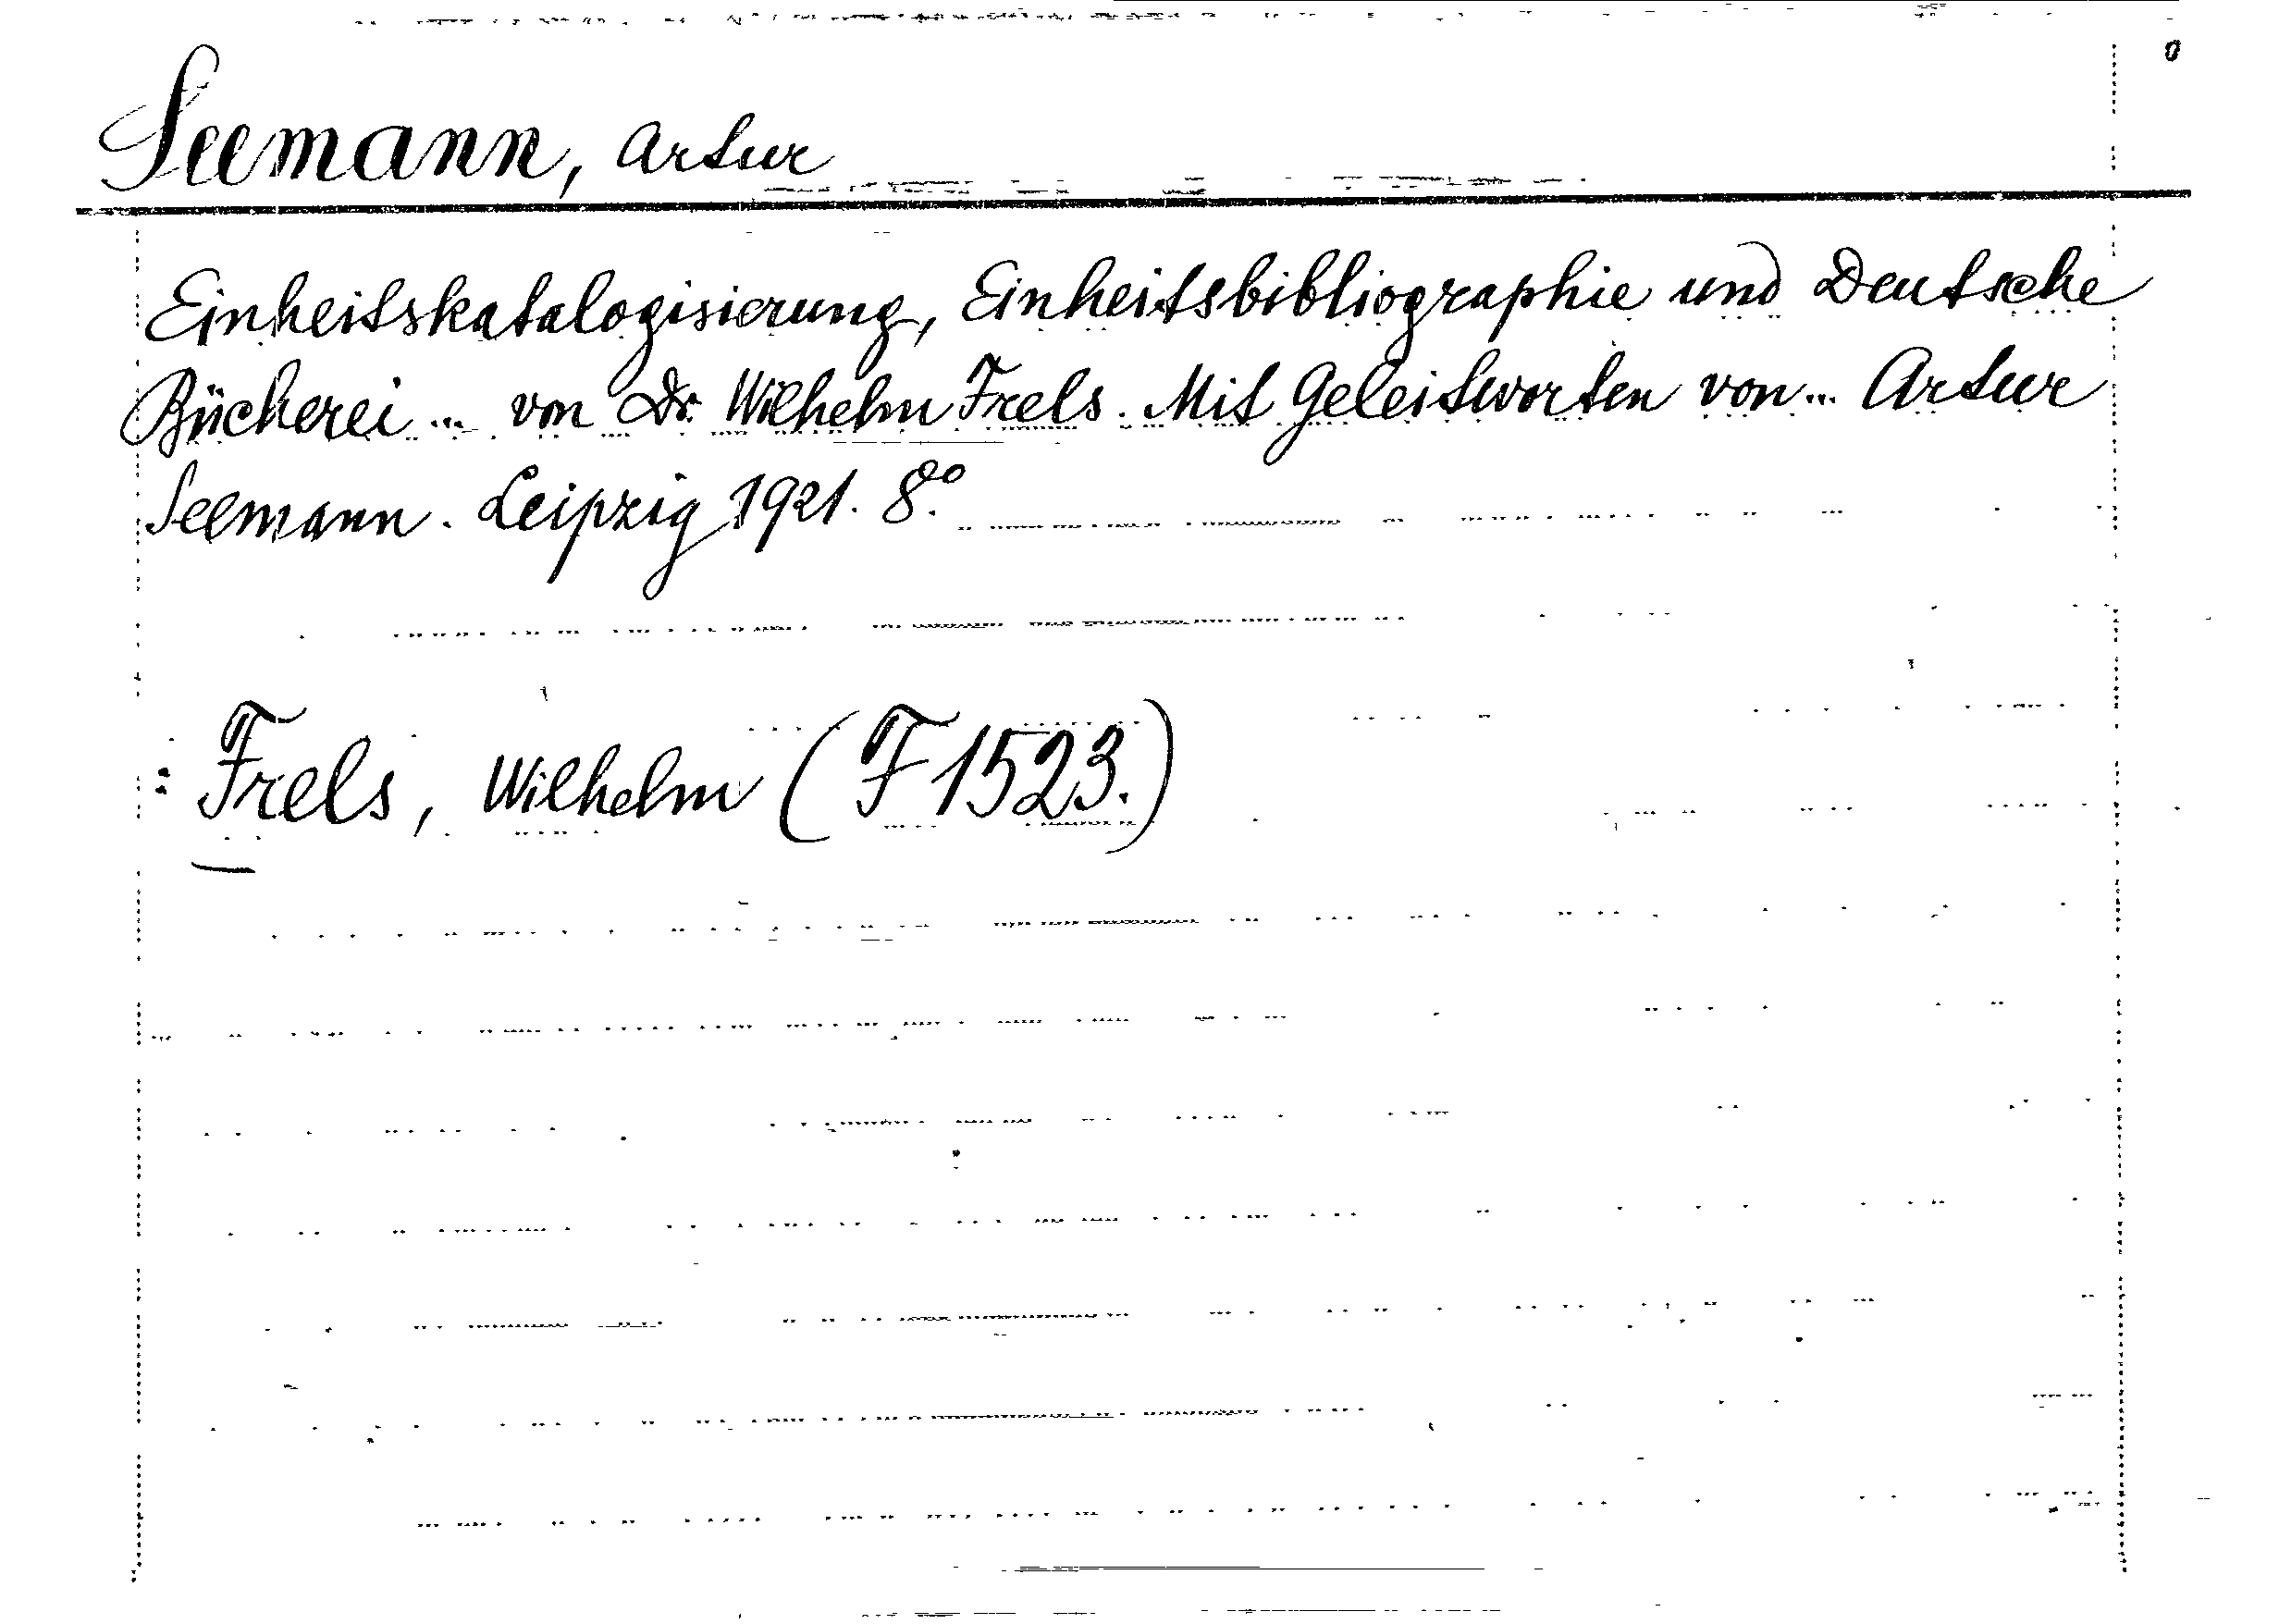 Seemann, Artur
Einheitskatalogisierung, Einheitsbibliographie und Deutsche
Bücherei ... von Dr. Wilhelm Frels. Mit Geleitworten von ... Artur
Seemann. Leipzig 1921. 8°.
: Frels, Wilhelm (F 1523.)